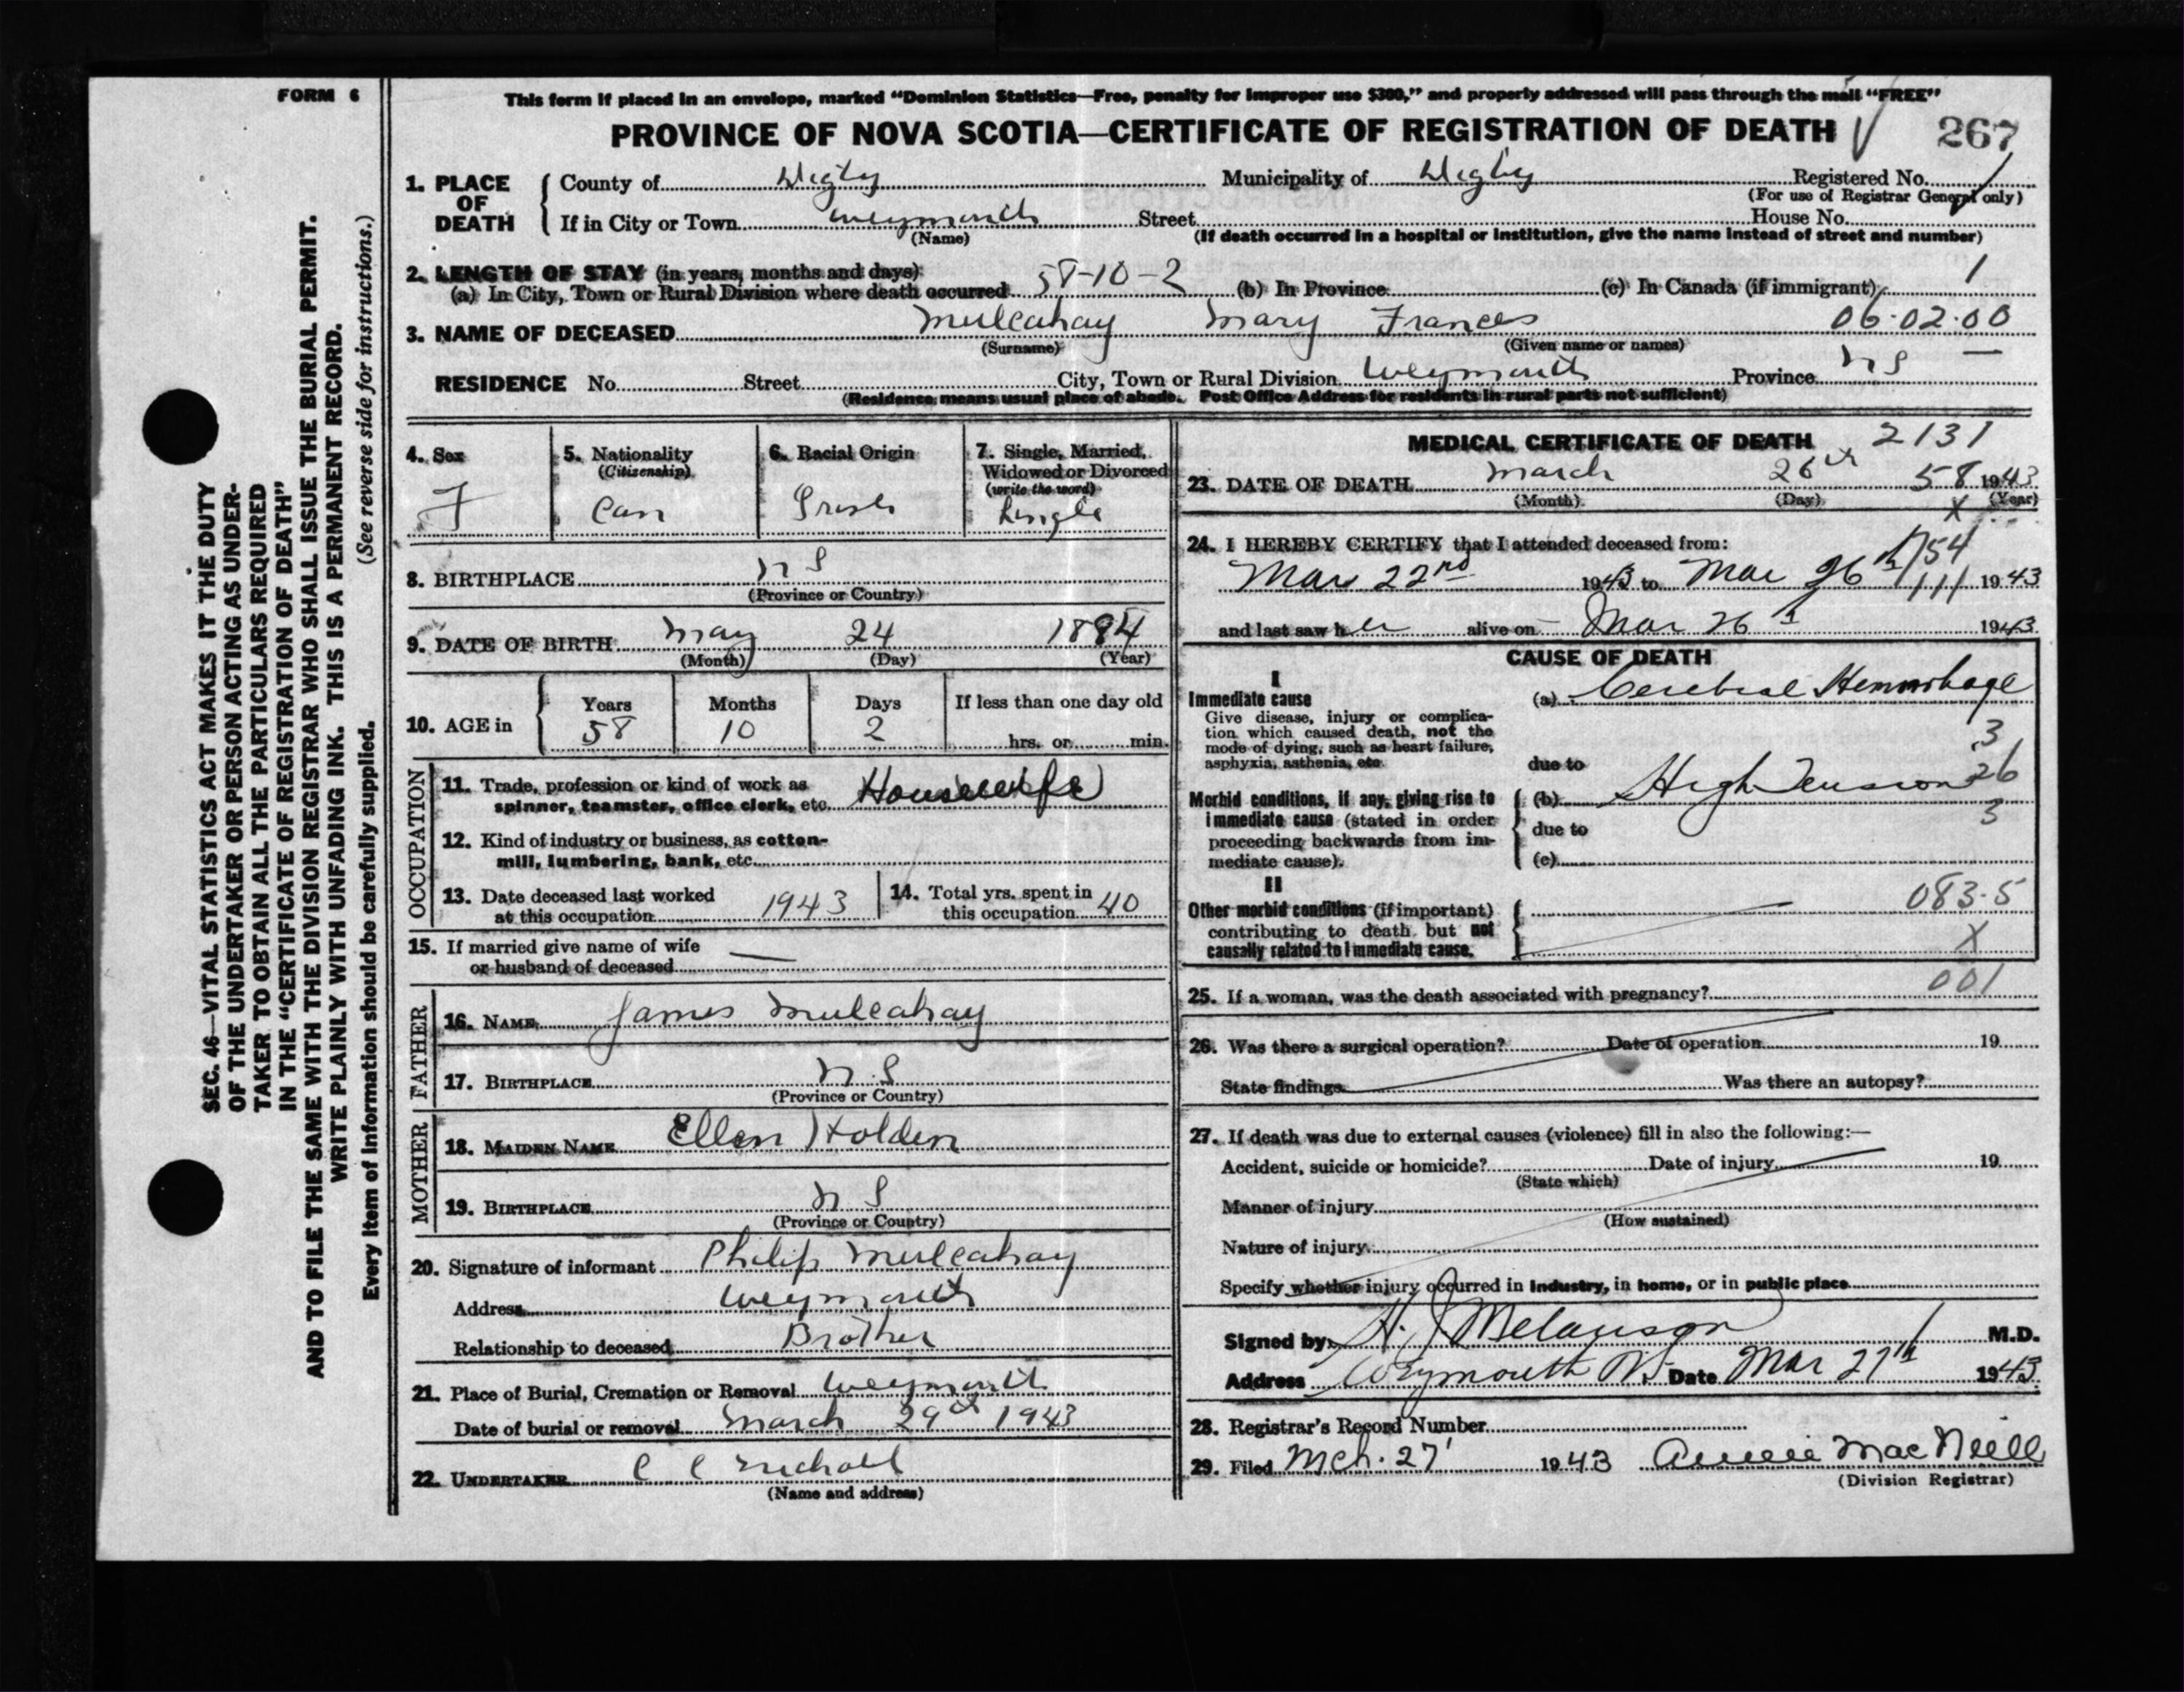 FORM 6
This form if placed in an envelope, marked "Dominion Statistics—Free, penalty for improper use $300," and properly addressed will pass through the mail "FREE"
PROVINCE OF NOVA SCOTIA—CERTIFICATE OF REGISTRATION OF DEATH 267
1. PLACE OF DEATH
County of Digby Municipality of Digby Registered No.
(For use of Registrar General only)
If in City or Town Weymouth Street House No.
(Name) (If death occurred in a hospital or institution, give the name instead of street and number)
2. LENGTH OF STAY (in years, months and days)
(a) In City, Town or Rural Division where death occurred 58-10-2 (b) In Province (c) In Canada (if immigrant) 1
3. NAME OF DECEASED Mulcahay Mary Frances 06.02.00
(Surname) (Given name or names)
RESIDENCE No. Street City, Town or Rural Division Weymouth Province N S
(Residence means usual place of abode. Post Office Address for residents in rural parts not sufficient)
4. Sex
F
5. Nationality
(Citizenship)
Can
6. Racial Origin
Irish
7. Single, Married, Widowed or Divorced
(write the word)
Single
8. BIRTHPLACE N S
(Province or Country)
9. DATE OF BIRTH May 24 1884
(Month) (Day) (Year)
10. AGE in
Years Months Days If less than one day old
58 10 2 hrs. or min.
OCCUPATION
11. Trade, profession or kind of work as
spinner, teamster, office clerk, etc. Housewife
12. Kind of industry or business, as cotton-
mill, lumbering, bank, etc.
13. Date deceased last worked
at this occupation 1943
14. Total yrs. spent in
this occupation 40
15. If married give name of wife
or husband of deceased —
FATHER
16. NAME James Mulcahay
17. BIRTHPLACE N.S
(Province or Country)
MOTHER
18. MAIDEN NAME Ellen Holden
19. BIRTHPLACE N S
(Province or Country)
20. Signature of informant Philip Mulcahay
Address Weymouth
Relationship to deceased Brother
21. Place of Burial, Cremation or Removal Weymouth
Date of burial or removal March 29th 1943
22. UNDERTAKER C C
(Name and address)
MEDICAL CERTIFICATE OF DEATH 2131
23. DATE OF DEATH March 26th 58 1943
(Month) (Day) (Year)
X
24. I HEREBY CERTIFY that I attended deceased from:
Mar 22nd 1943 to Mar 26th 1943
and last saw her alive on Mar 26th 1943
CAUSE OF DEATH
I
Immediate cause
Give disease, injury or complica-
tion which caused death, not the
mode of dying, such as heart failure,
asphyxia, asthenia, etc.
(a) Cerebral Hemorrhage
3
due to
26
Morbid conditions, if any, giving rise to
immediate cause (stated in order
proceeding backwards from im-
mediate cause).
(b) High Tension
3
due to
(c)
II
Other morbid conditions (if important)
contributing to death but not
causally related to immediate cause.
083.5
X
25. If a woman, was the death associated with pregnancy? 001
26. Was there a surgical operation? Date of operation 19
State findings Was there an autopsy?
27. If death was due to external causes (violence) fill in also the following:—
Accident, suicide or homicide? Date of injury 19
(State which)
Manner of injury
(How sustained)
Nature of injury
Specify whether injury occurred in industry, in home, or in public place
Signed by H. J Melanson M.D.
Address Weymouth NS Date Mar 27th 1943
28. Registrar's Record Number
29. Filed Mch. 27 1943 Annie MacNeill
(Division Registrar)
SEC. 46—VITAL STATISTICS ACT MAKES IT THE DUTY
OF THE UNDERTAKER OR PERSON ACTING AS UNDER-
TAKER TO OBTAIN ALL THE PARTICULARS REQUIRED
IN THE "CERTIFICATE OF REGISTRATION OF DEATH"
AND TO FILE THE SAME WITH THE DIVISION REGISTRAR WHO SHALL ISSUE THE BURIAL PERMIT.
WRITE PLAINLY WITH UNFADING INK. THIS IS A PERMANENT RECORD.
Every item of information should be carefully supplied. (See reverse side for instructions.)